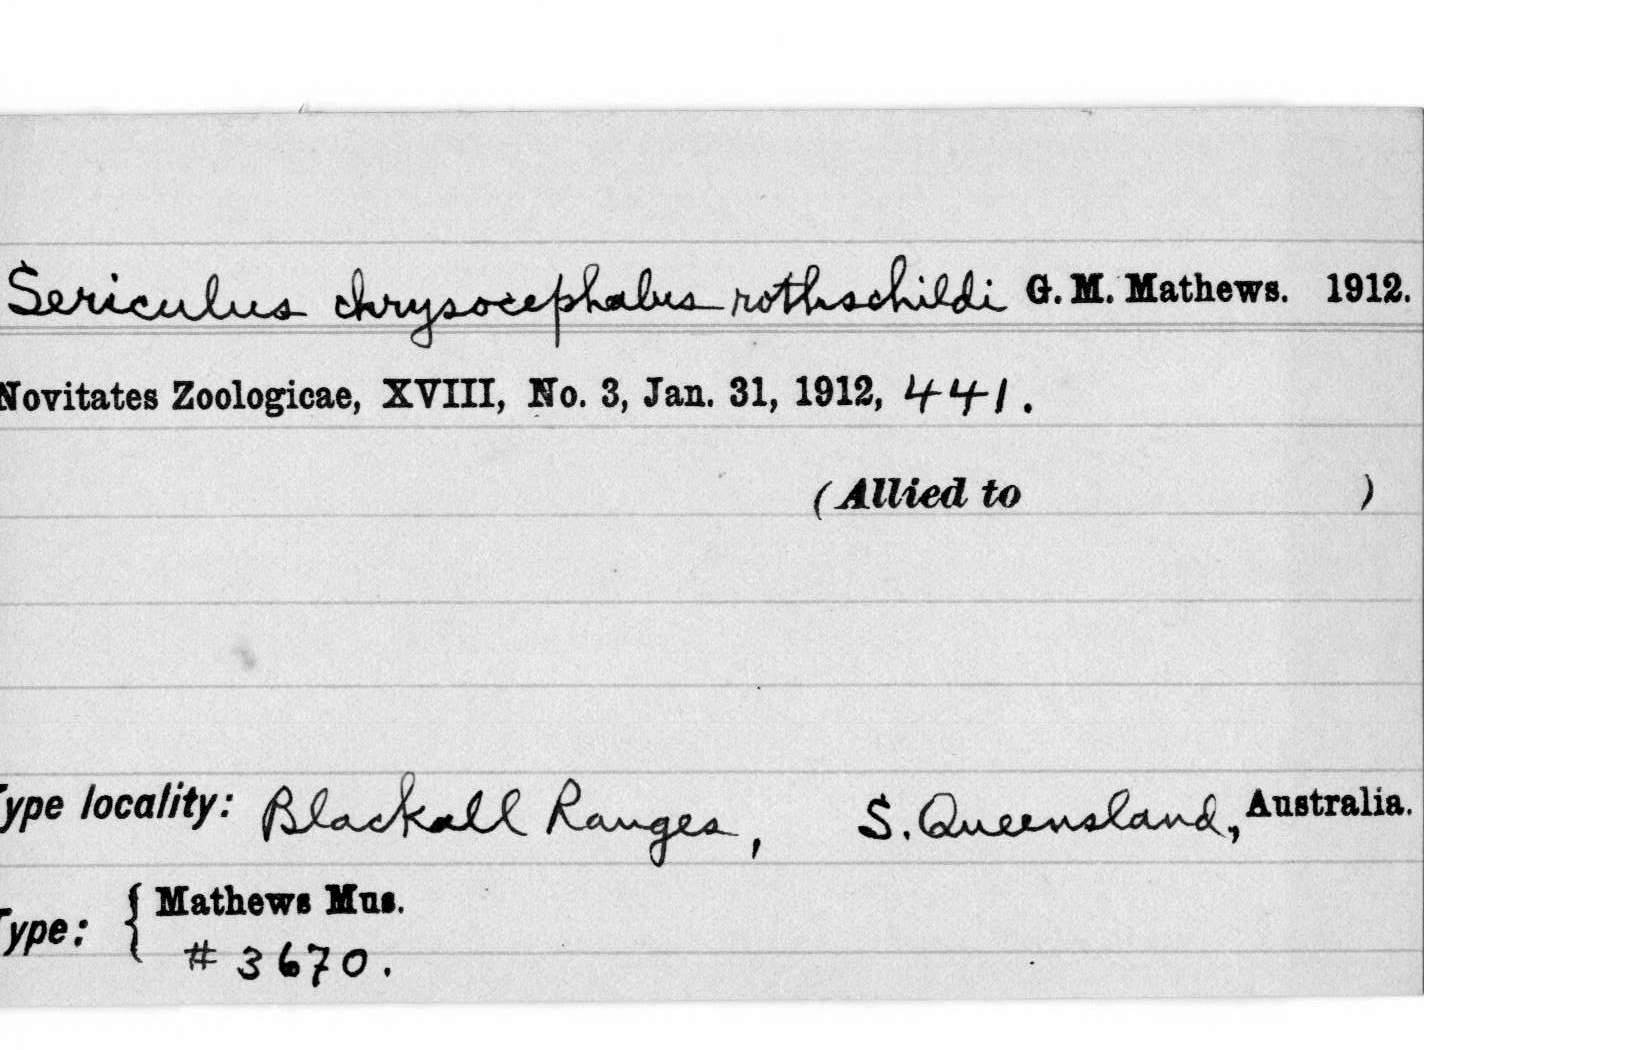 Sericulus chrysocephalus rothschildi G. M. Mathews. 1912.
Novitates Zoologicae, XVIII, No. 3, Jan. 31, 1912, 441.
(Allied to )
Type locality: Blackall Ranges, S. Queensland, Australia.
Type: { Mathews Mus.
# 3670.